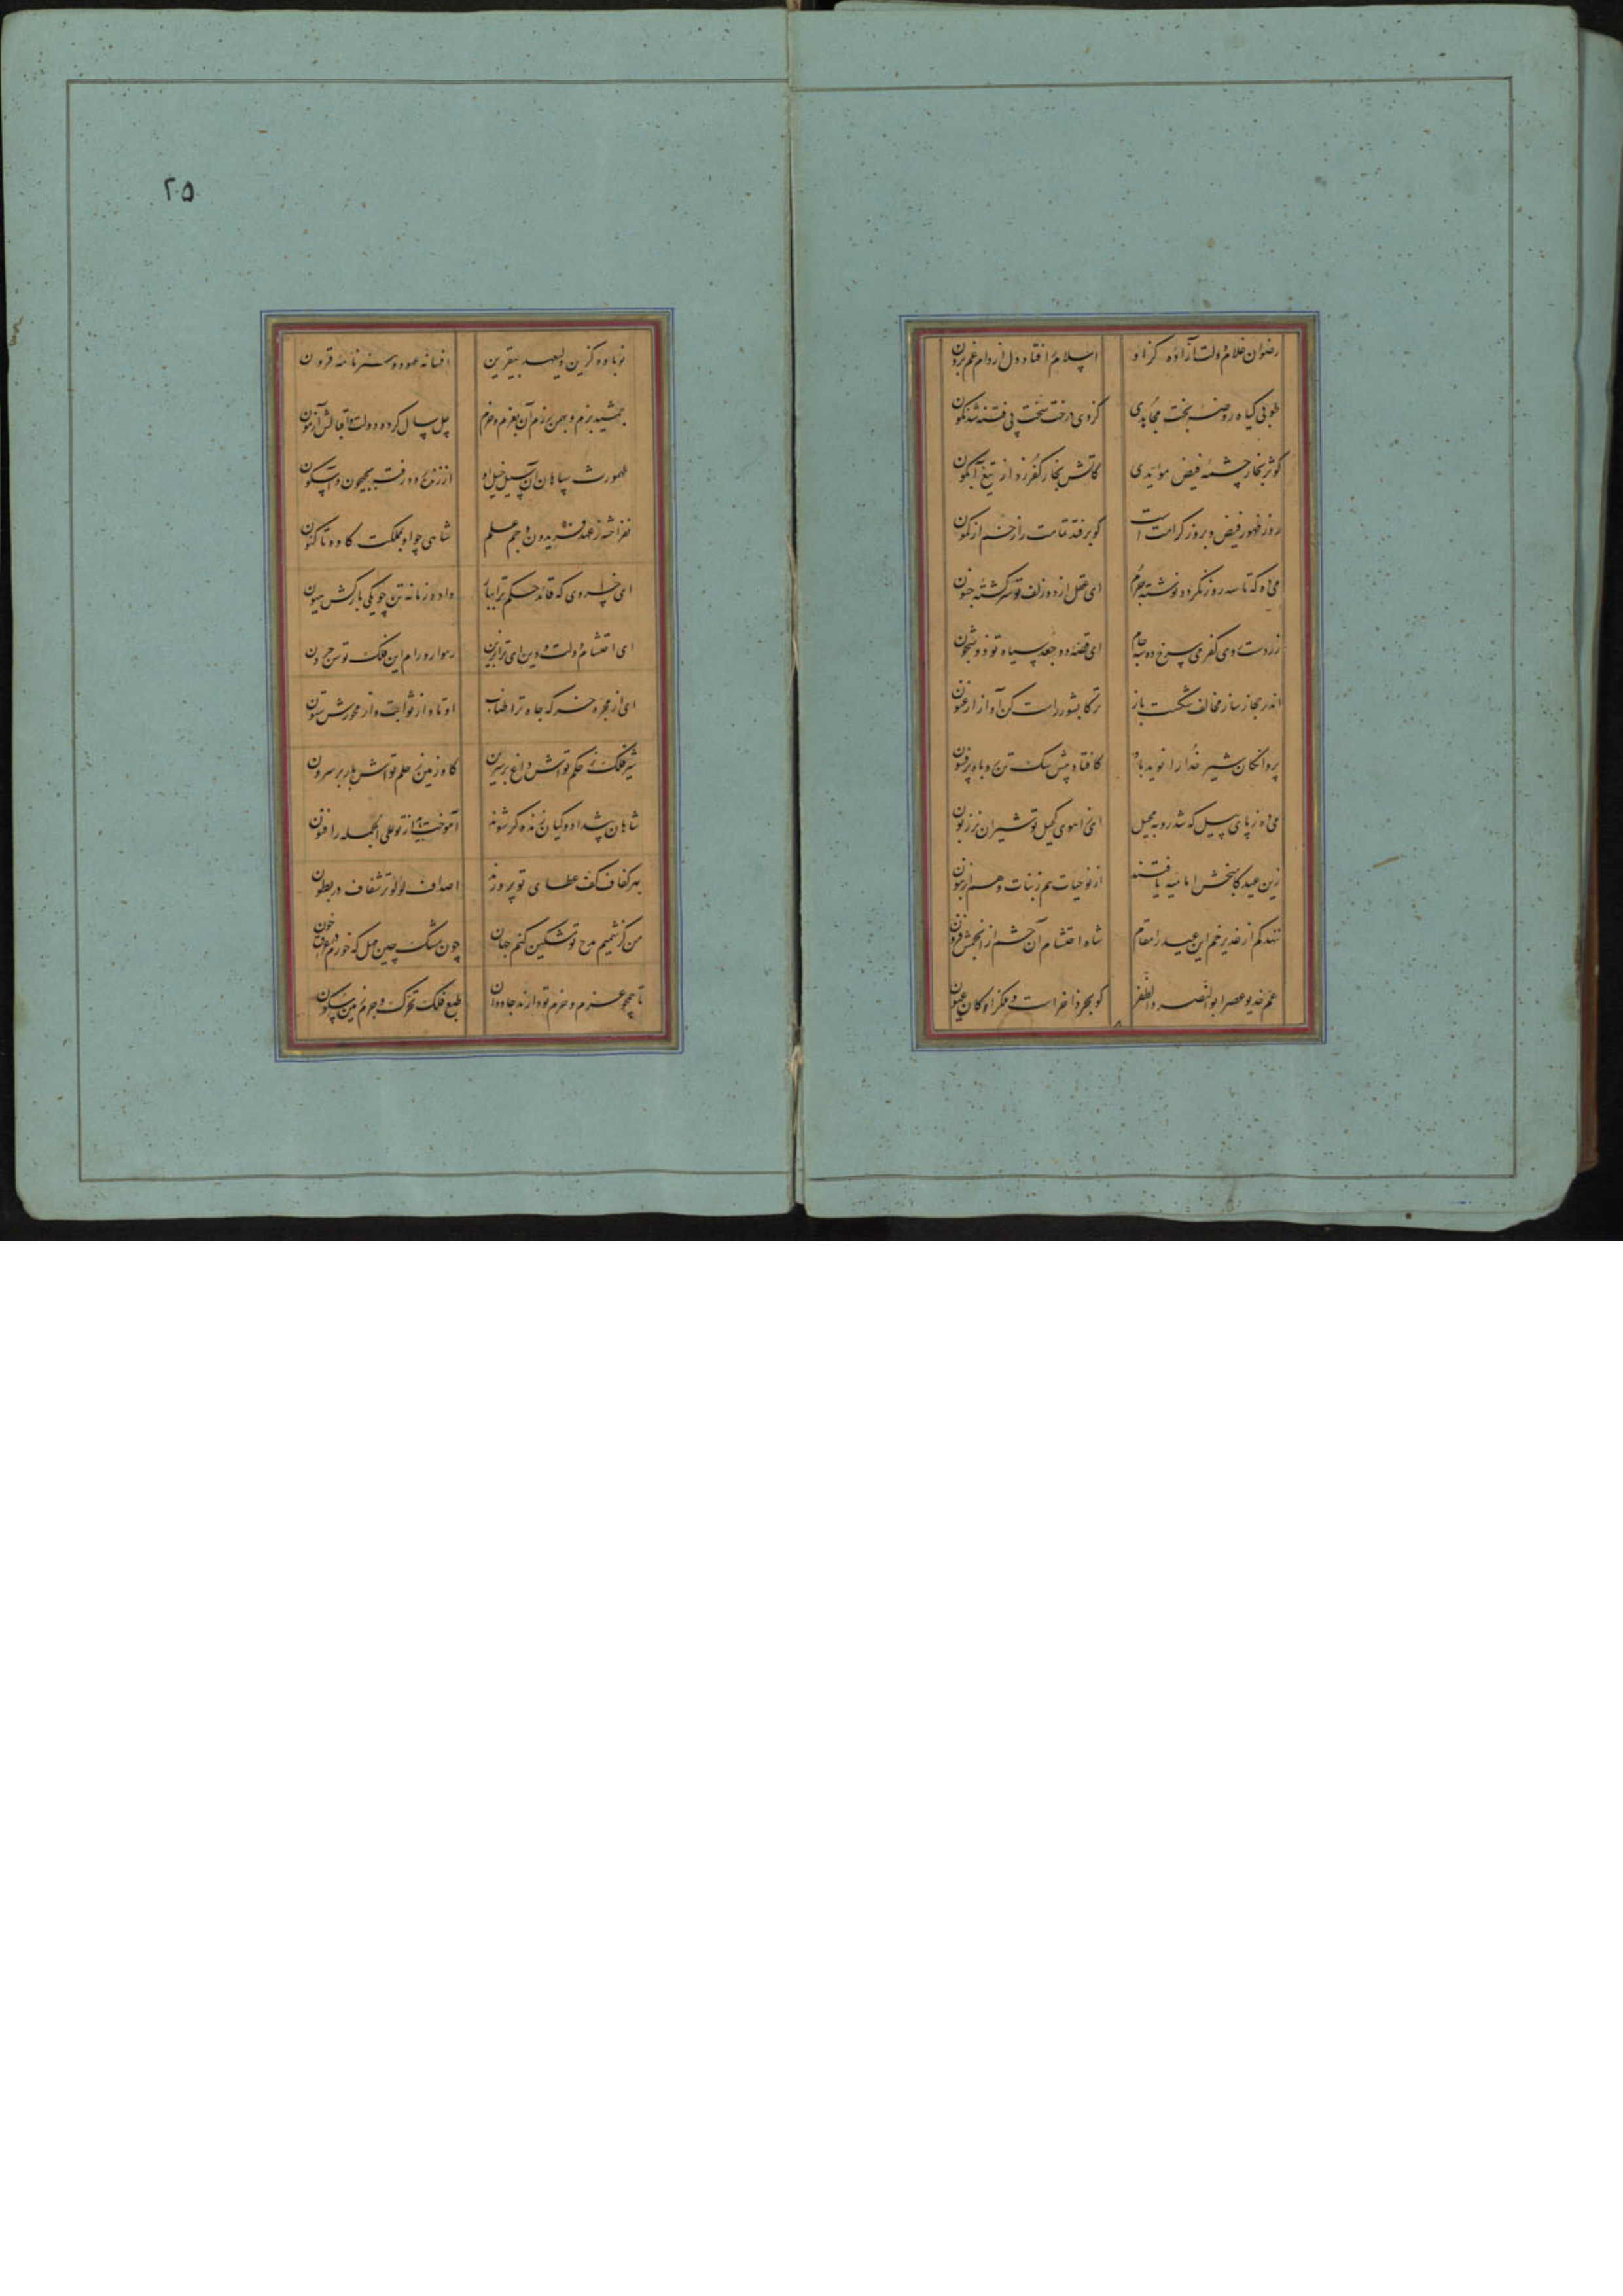 رضوان غلام دولت آزاده کز او اسلام افتاد دل از دام غم برون
طوبی گیاه روضه بخت مجاهدی کز وی درخت سخت پی فتنه شد نگون
کوثر بخار چشمه فیض مؤیدی کاتش بخار کفر زد از تیغ آبگون
روز ظهور فیض و بروز کرامت است کو برفقد قامت راز خم از کمون
می ده که تا سه روز نگردد نوشته جرم ای عقل از دو زلف تو سرگشته جنون
زردست وی کفری سرخ ده سه جام ای قصه دو جعد سیاه تو ذو شجون
اندر حجاز ساز مخالف شکست باز ترکا بشور راست کن آواز ارغنون
پروانگان شیر خدا را نوید باد کافتاد پیش سگ تن روباه پر فسون
می ده ز پای پیل که شد رو به محیل ای ز آهوی کحیل تو شیران نر زبون
زین عید کابخش امامیه یافتند از نو حیات هم ز بنات و هم از بنون
ننهد کم از غدیر خم این عید را مقام شاه احتشام آن حشم از انجمش فزون
عم خدیو عصر ابوالنصر والظفر کو بحر ذاخر است و مکراو کان عیون
۲۰۵
نوباوه گزین ولیعهد بیقرین افسانه عهود و سمرنامه قرون
جمشید بزم و بهمن رزم آن بعزم و حزم چل سال کرده دولت و اقبالش آزمون
طهمورث سپاهان آن سیل خیل او از زنده رود رفت بجیحون و آبسکون
نفراشته ز عهد فریدون و جم علم شاهی چو او بمملکت کاوه تا کنون
ای خسروی که قائد حکم ترا بپا داده زمانه تن چو یکی بارکش هیون
ای احتشام دولت و دین ای ترا بزین رهوار و رام این فلک توسن حرون
ای از مجره خرگه جاه ترا طناب اوتاد از ثوابت و از محورش ستون
شیر فلک ز حکم تواش داغ بر سرین گاو زمین ز حلم تواش بار بر سرون
شاهان پیشداد و کیان زنده گر شوند آموخت باید از تو علی الجمله را فنون
بهر کفاف کف عطای تو پرورند اصداف لؤلؤ تر شفاف در بطون
من کز شمیم مدح تو مشکین کنم جهان چون مشک چین مهل که خورم خون
تا همچو عزم و حزم تو دارند جاودان طبع فلک تحرک و جرم زمین سکون